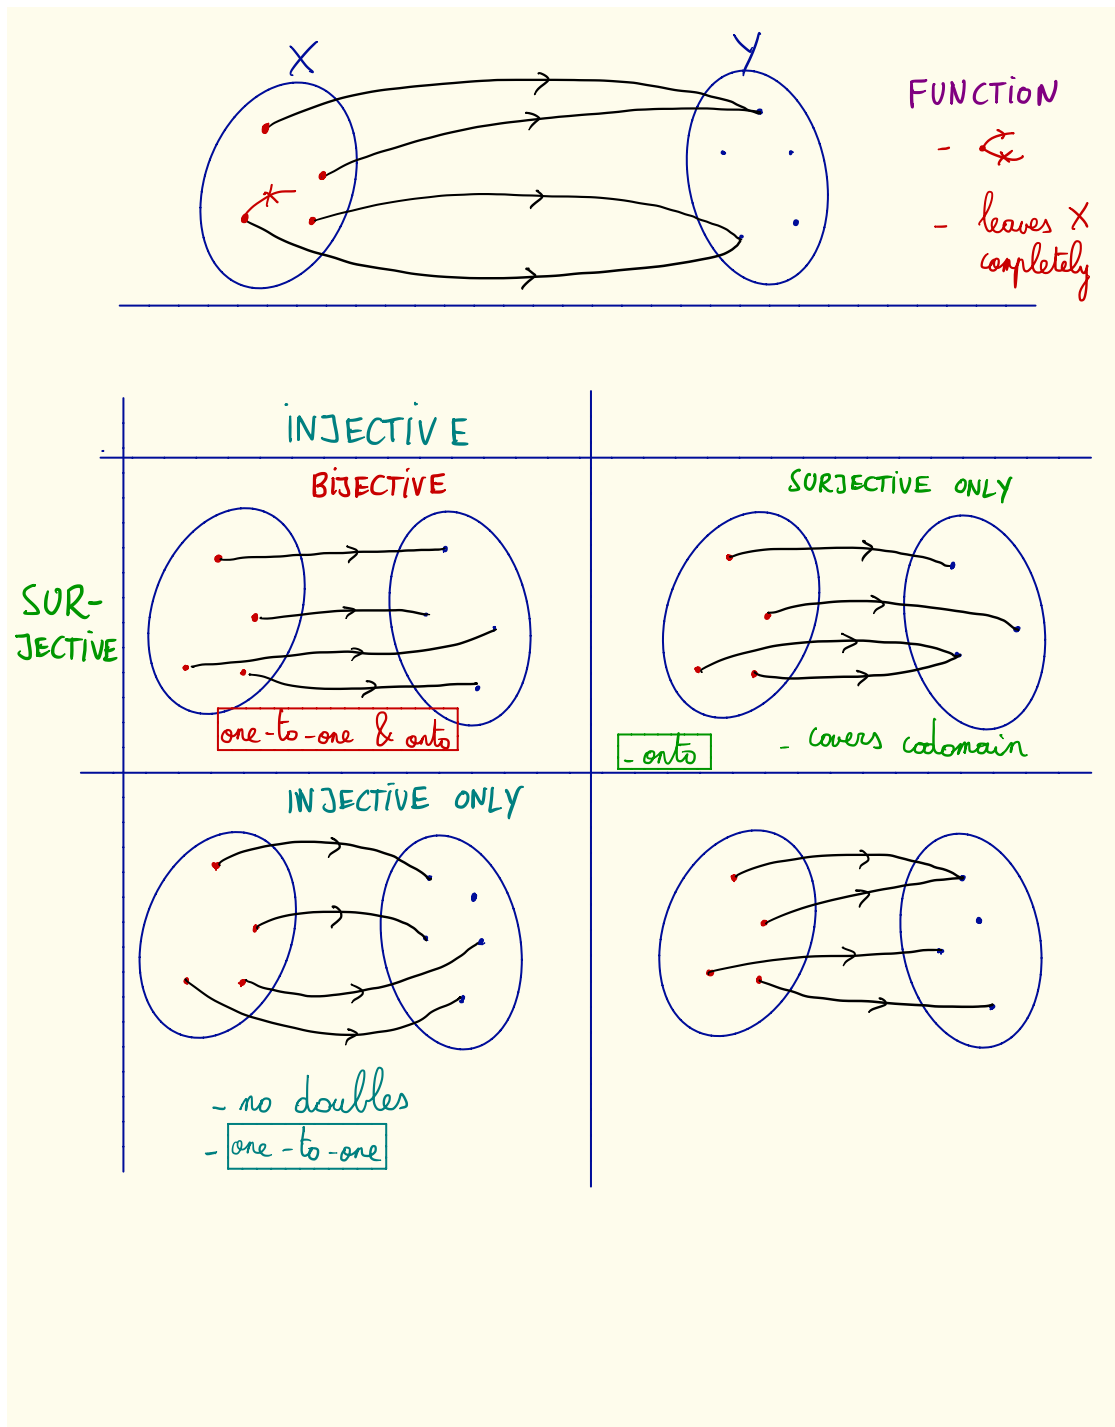 X
Y
FUNCTION
- leaves X
completely
INJECTIVE
BIJECTIVE
SURJECTIVE ONLY
SUR-
JECTIVE
one-to-one & onto
- onto
- covers codomain
INJECTIVE ONLY
- no doubles
- one-to-one